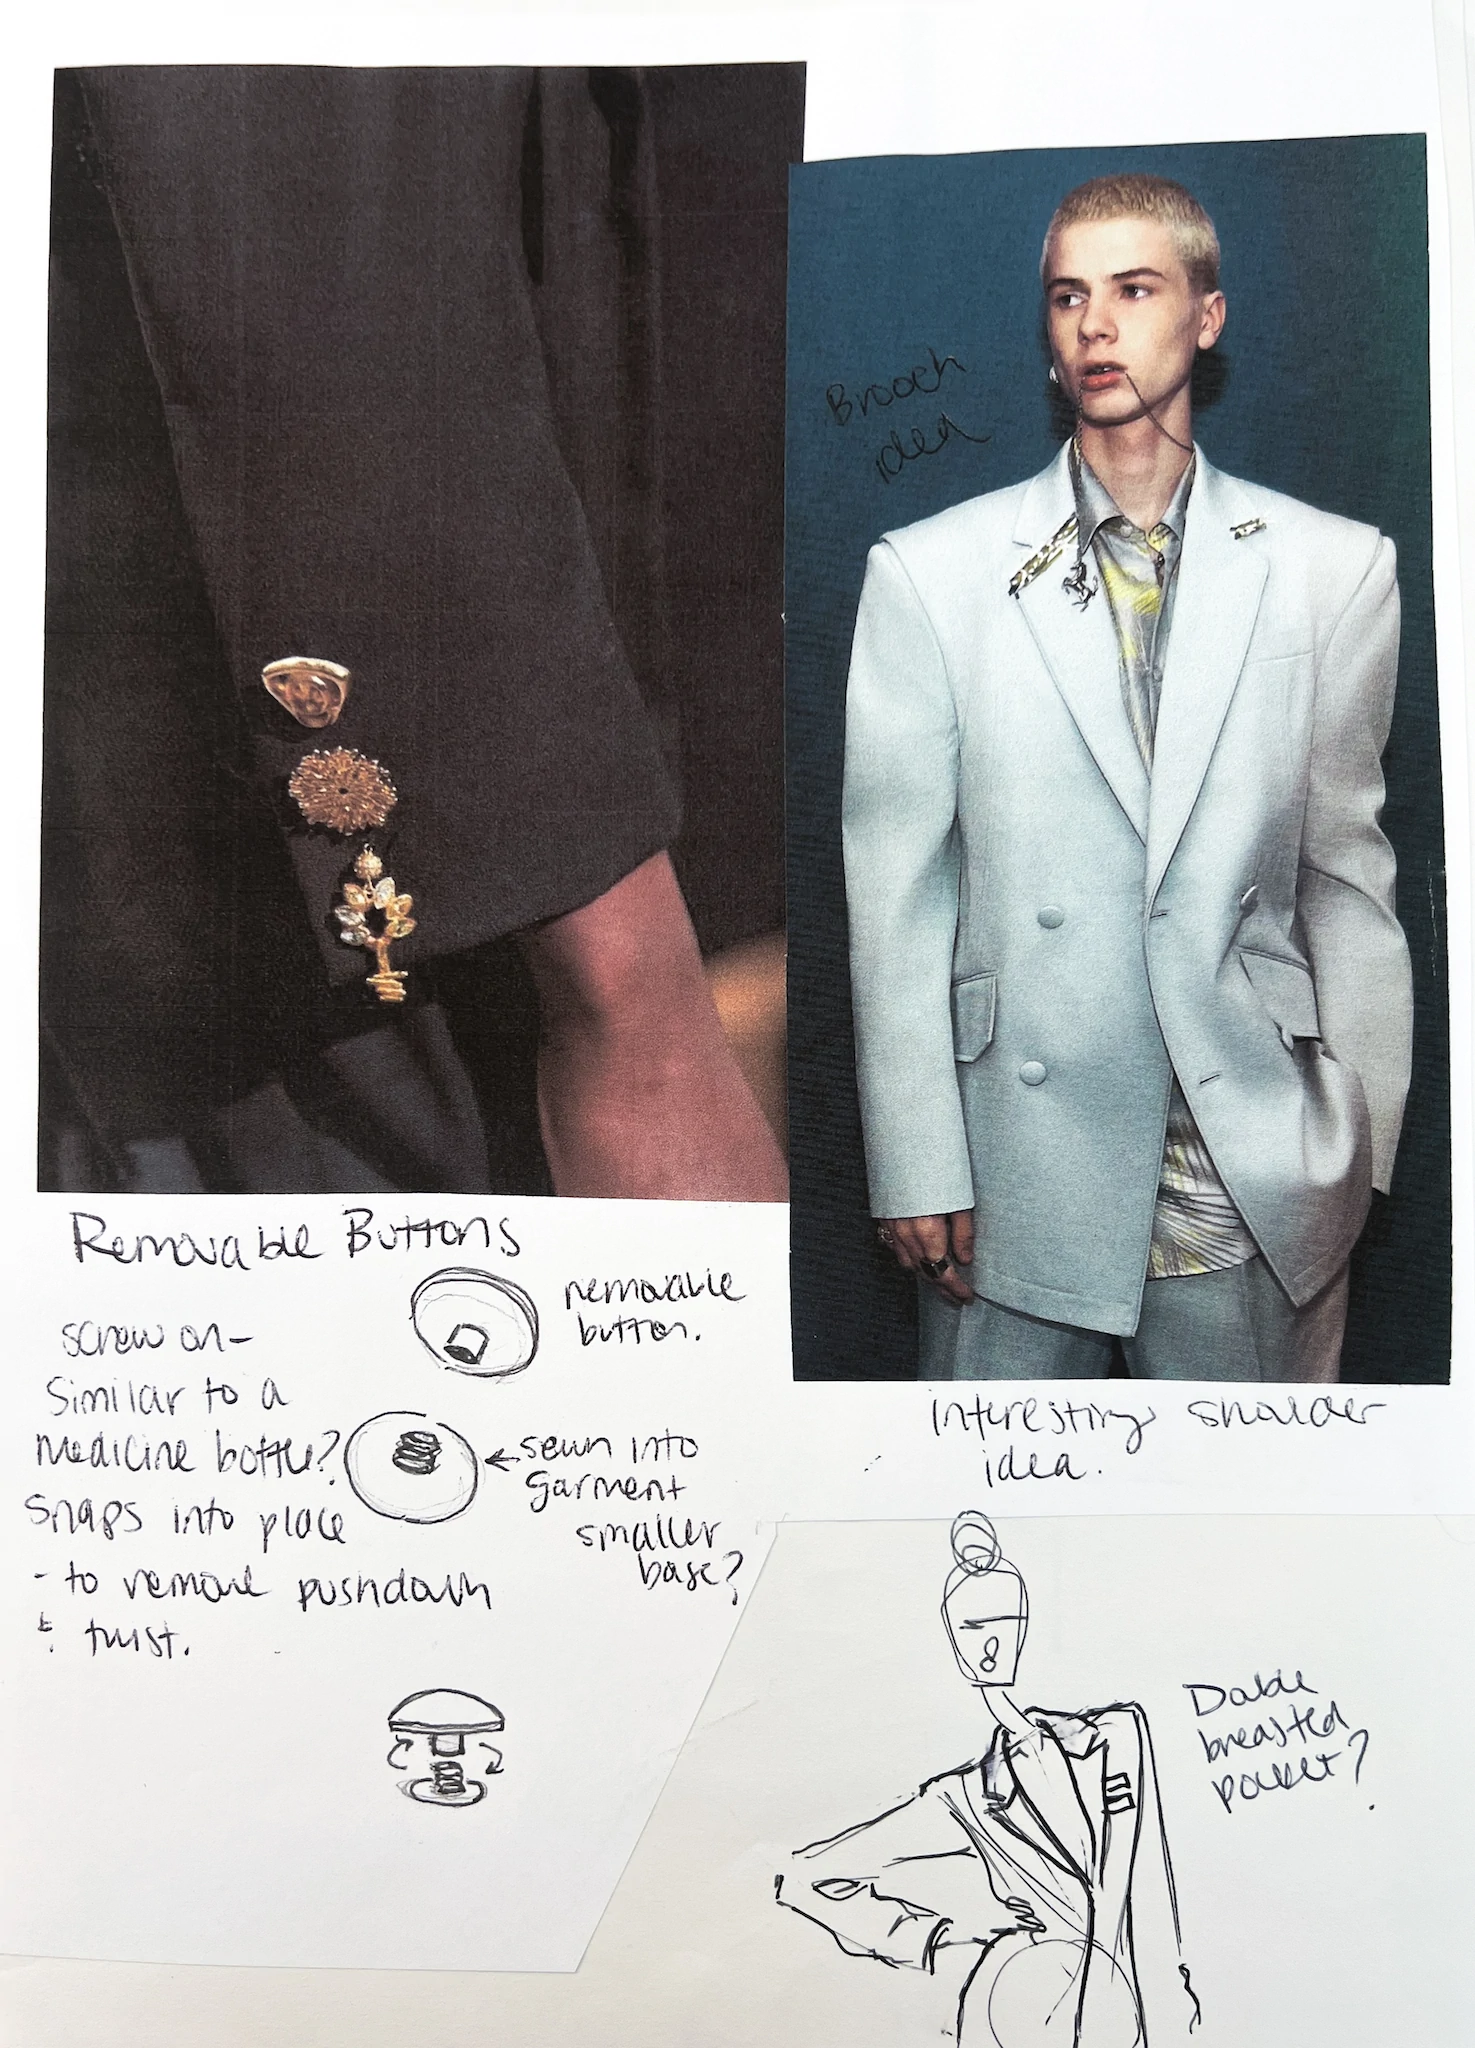 Brooch
idea
Removable Buttons
screw on-
Similar to a
medicine bottle?
Snaps into place
- to remove pushdown
& twist.
removable
button.
← sewn into
garment
smaller
base?
interesting shoulder
idea.
Double
breasted
pocket?